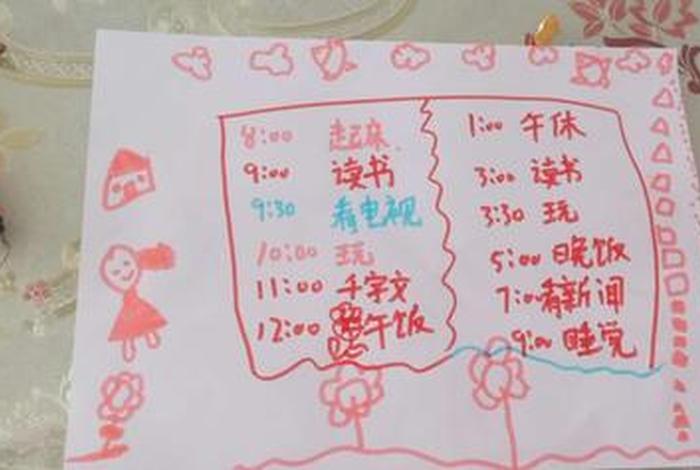 8:00 起床
9:00 读书
9:30 看电视
10:00 玩
11:00 千字文
12:00 午饭
1:00 午休
3:00 读书
3:30 玩
5:00 晚饭
7:00 看新闻
9:00 睡觉